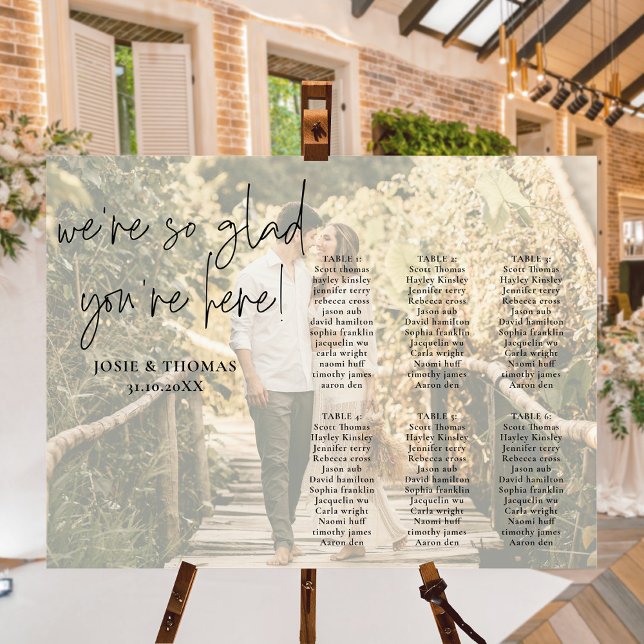 we're so glad
you're here!
JOSIE & THOMAS
31.10.20XX
TABLE 1:
Scott thomas
hayley kinsley
jennifer terry
rebecca cross
jason aub
david hamilton
sophia franklin
jacquelin wu
carla wright
Naomi huff
timothy james
Aaron den
TABLE 2:
Scott Thomas
Hayley Kinsley
Jennifer Terry
Rebecca cross
Jason aub
David hamilton
Sophia franklin
Jacquelin wu
Carla wright
Naomi huff
timothy james
Aaron den
TABLE 3:
Scott Thomas
Hayley Kinsley
Jennifer Terry
Rebecca cross
Jason aub
David hamilton
Sophia franklin
Jacquelin wu
Carla wright
Naomi huff
timothy james
Aaron den
TABLE 4:
Scott Thomas
Hayley Kinsley
Jennifer Terry
Rebecca cross
Jason aub
David hamilton
Sophia franklin
Jacquelin wu
Carla wright
Naomi huff
timothy james
Aaron den
TABLE 5:
Scott Thomas
Hayley Kinsley
Jennifer Terry
Rebecca cross
Jason aub
David hamilton
Sophia franklin
Jacquelin wu
Carla wright
Naomi huff
timothy james
Aaron den
TABLE 6:
Scott Thomas
Hayley Kinsley
Jennifer Terry
Rebecca cross
Jason aub
David hamilton
Sophia franklin
Jacquelin wu
Carla wright
Naomi huff
timothy james
Aaron den